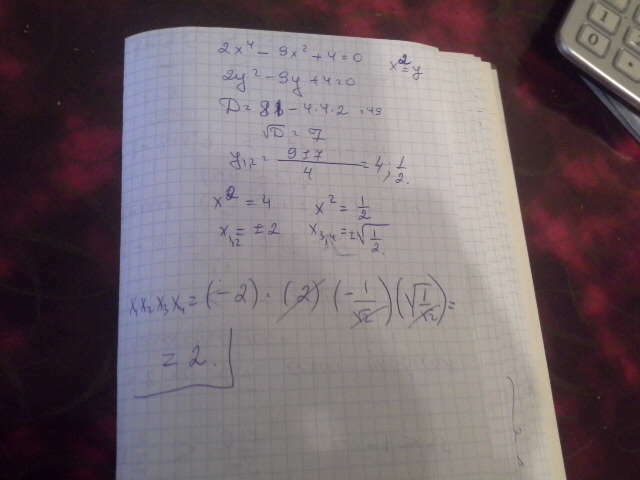 2x⁴ - 9x² + 4 = 0
x² = y
2y² - 9y + 4 = 0
D = 81 - 4·4·2 = 49
√D = 7
y₁,₂ = (9±7)/4 = 4; 1/2.
x² = 4 x² = 1/2
x₁,₂ = ±2 x₃,₄ = ±√(1/2).
x₁x₂x₃x₄ = (-2)·(2)(-1/√2)(√1/√2) =
= 2.
1
0